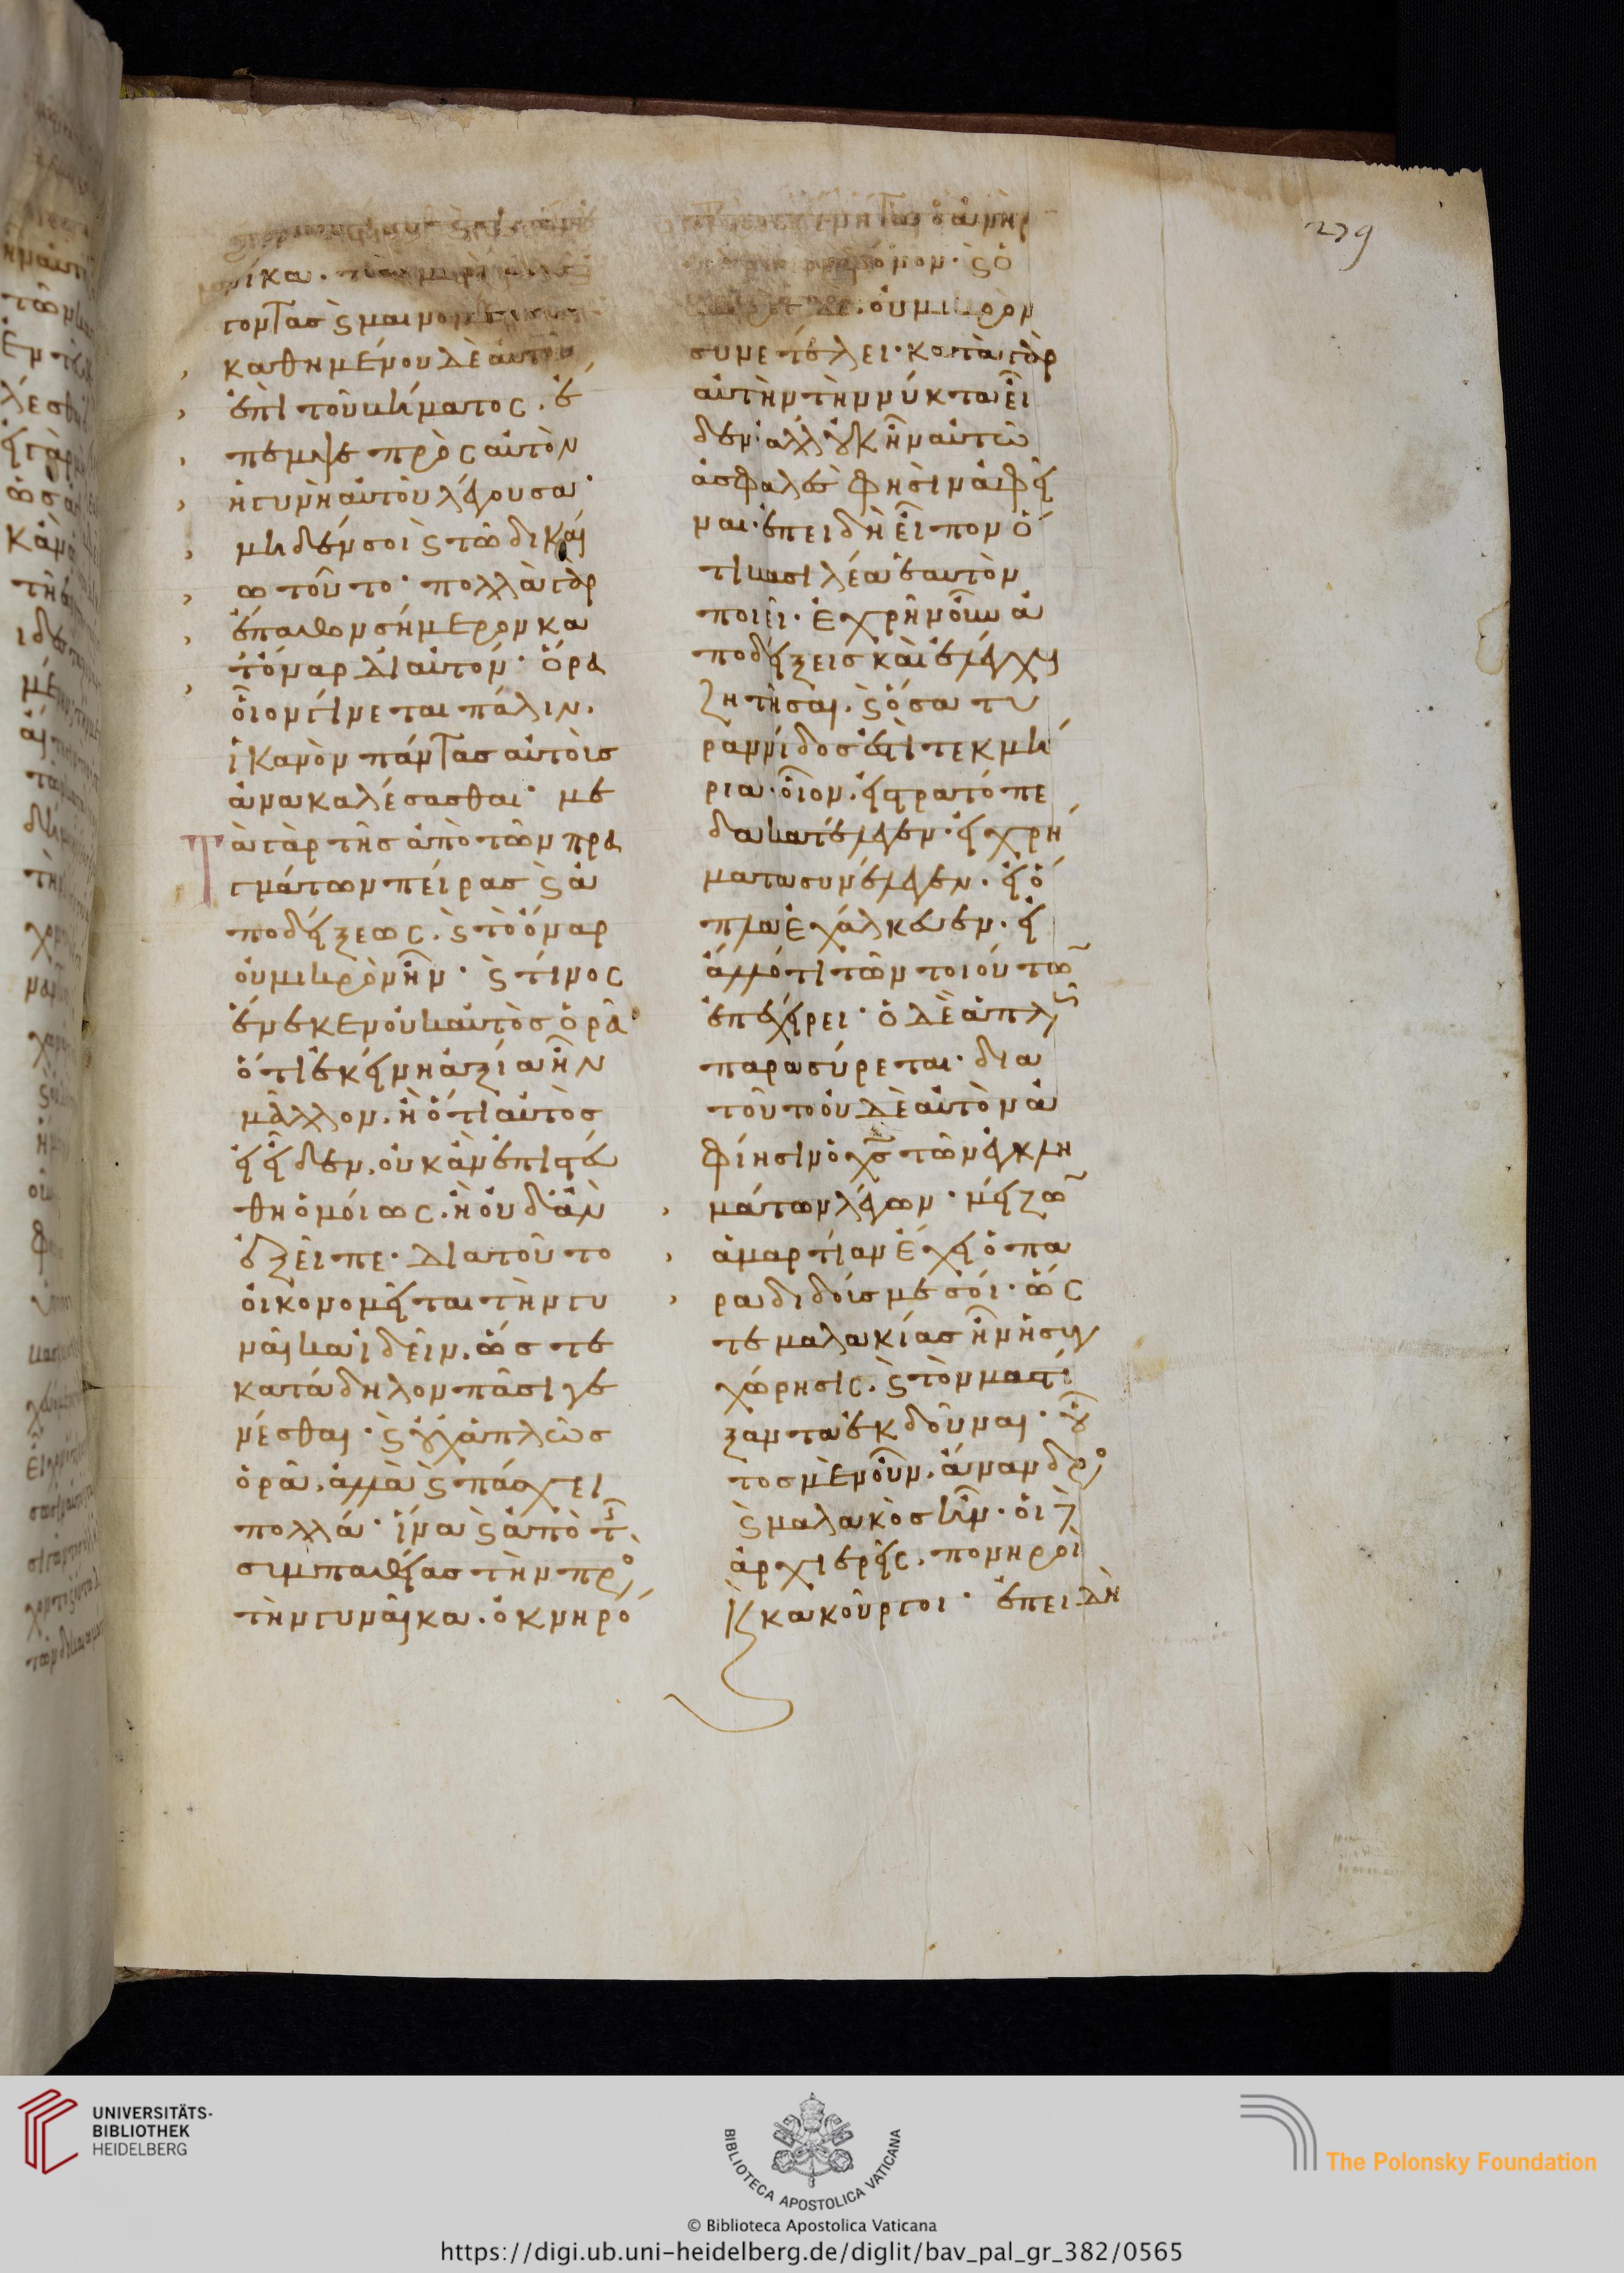 279
καθημένου δὲ αὐτοῦ
ἐπὶ τοῦ βήματος. ἔ
πεμψε πρὸς αὐτὸν
ἡ γυνὴ αὐτοῦ λέγουσα·
μηδέν σοὶ ϗ τῶ δικαί
ω τούτο· πολλὰ γὰρ
ἔπαθον σήμερον κα
τόναρ δι αὐτόν· ὅρα
οἷον γίνεται πάλιν.
ἱκανὸν πάντας αὐτοὺς
ἀνακαλέσασθαι· με
τὰ γὰρ τῆς ἀπὸ τῶν πρα
γμάτων πείρας ϗ ἀ
ποδείξεως. ϗ τὸ ὄναρ
οὐ μικρὸν ἦν· ϗ τίνος
ἕνεκεν οὐκ αὐτὸς ὁρᾶ·
ὅτι ἐκείνη ἀξία ἦν
μᾶλλον. ἢ ὅτι αὐτὸς
εἰ εἶδεν. οὐκ ἂν ἐπιστεύ
θη ὁμοίως. ἢ οὐδ' ἂν
ἐξεῖπε. διατοῦτο
οἰκονομεῖται τὴν γυ
ναῖκα ἰδεῖν. ὥστε
κατάδηλον πᾶσι γε
νέσθαι· ϗ οὐχ ἁπλῶς
ὁρᾶ. ἀλλὰ ϗ πάσχει
πολλά· ἵνα ϗ ἀπὸ τῆς
συμπαθείας τὴν πρὸς
τὴν γυναῖκα. ὀκνηρό
συνετέλει· κατὰ γὰρ
αὐτὴν τὴν νύκτα εἶ
δεν· ἀλλ' οὐκ ἦν αὐτῶ
ἀσφαλὲς φησὶν ἀφεῖ
ναι· ἐπειδὴ εἶπον ὅ
τι βασιλέα ἑαυτὸν
ποιεῖ· ἐχρῆν οὖν ἀ
ποδείξεις καὶ ἐλέγχους
ζητῆσαι. ϗ ὅσα τυ
ραννίδος ἐστὶ τεκμή
ρια· οἷον. εἰ στρατόπε
δα κατέλεγεν. εἰ χρή
ματα συνέλεγεν. εἰ ὅ
πλα ἐχάλκευεν. εἰ
ἄλλό τι τῶν τοιούτων
ἐπεχείρει· ὁ δὲ ἁπλῶς
παρασύρεται· δια
τοῦτο οὐδὲ αὐτὸν ἀ
φίησιν ὁ χς τῶν ἐγκλη
μάτων λέγων· μείζων
ἁμαρτίαν ἔχει ὁ πα
ραδιδούς με σοί· ὥς
τε μαλακίας ἦν ἡ συγ
χώρησις. ϗ τὸν μαστί
ξαντα ἐκδοῦναι· οὗ
τος μὲν οὖν. ἄνανδρος
ϗ μαλακὸς ἦν· οἱ δὲ
ἀρχιερεῖς. πονηροὶ
ϗ κακοῦργοι· ἐπειδὴ
UNIVERSITÄTS-
BIBLIOTHEK
HEIDELBERG
BIBLIOTECA APOSTOLICA VATICANA
© Biblioteca Apostolica Vaticana
The Polonsky Foundation
https://digi.ub.uni-heidelberg.de/diglit/bav_pal_gr_382/0565